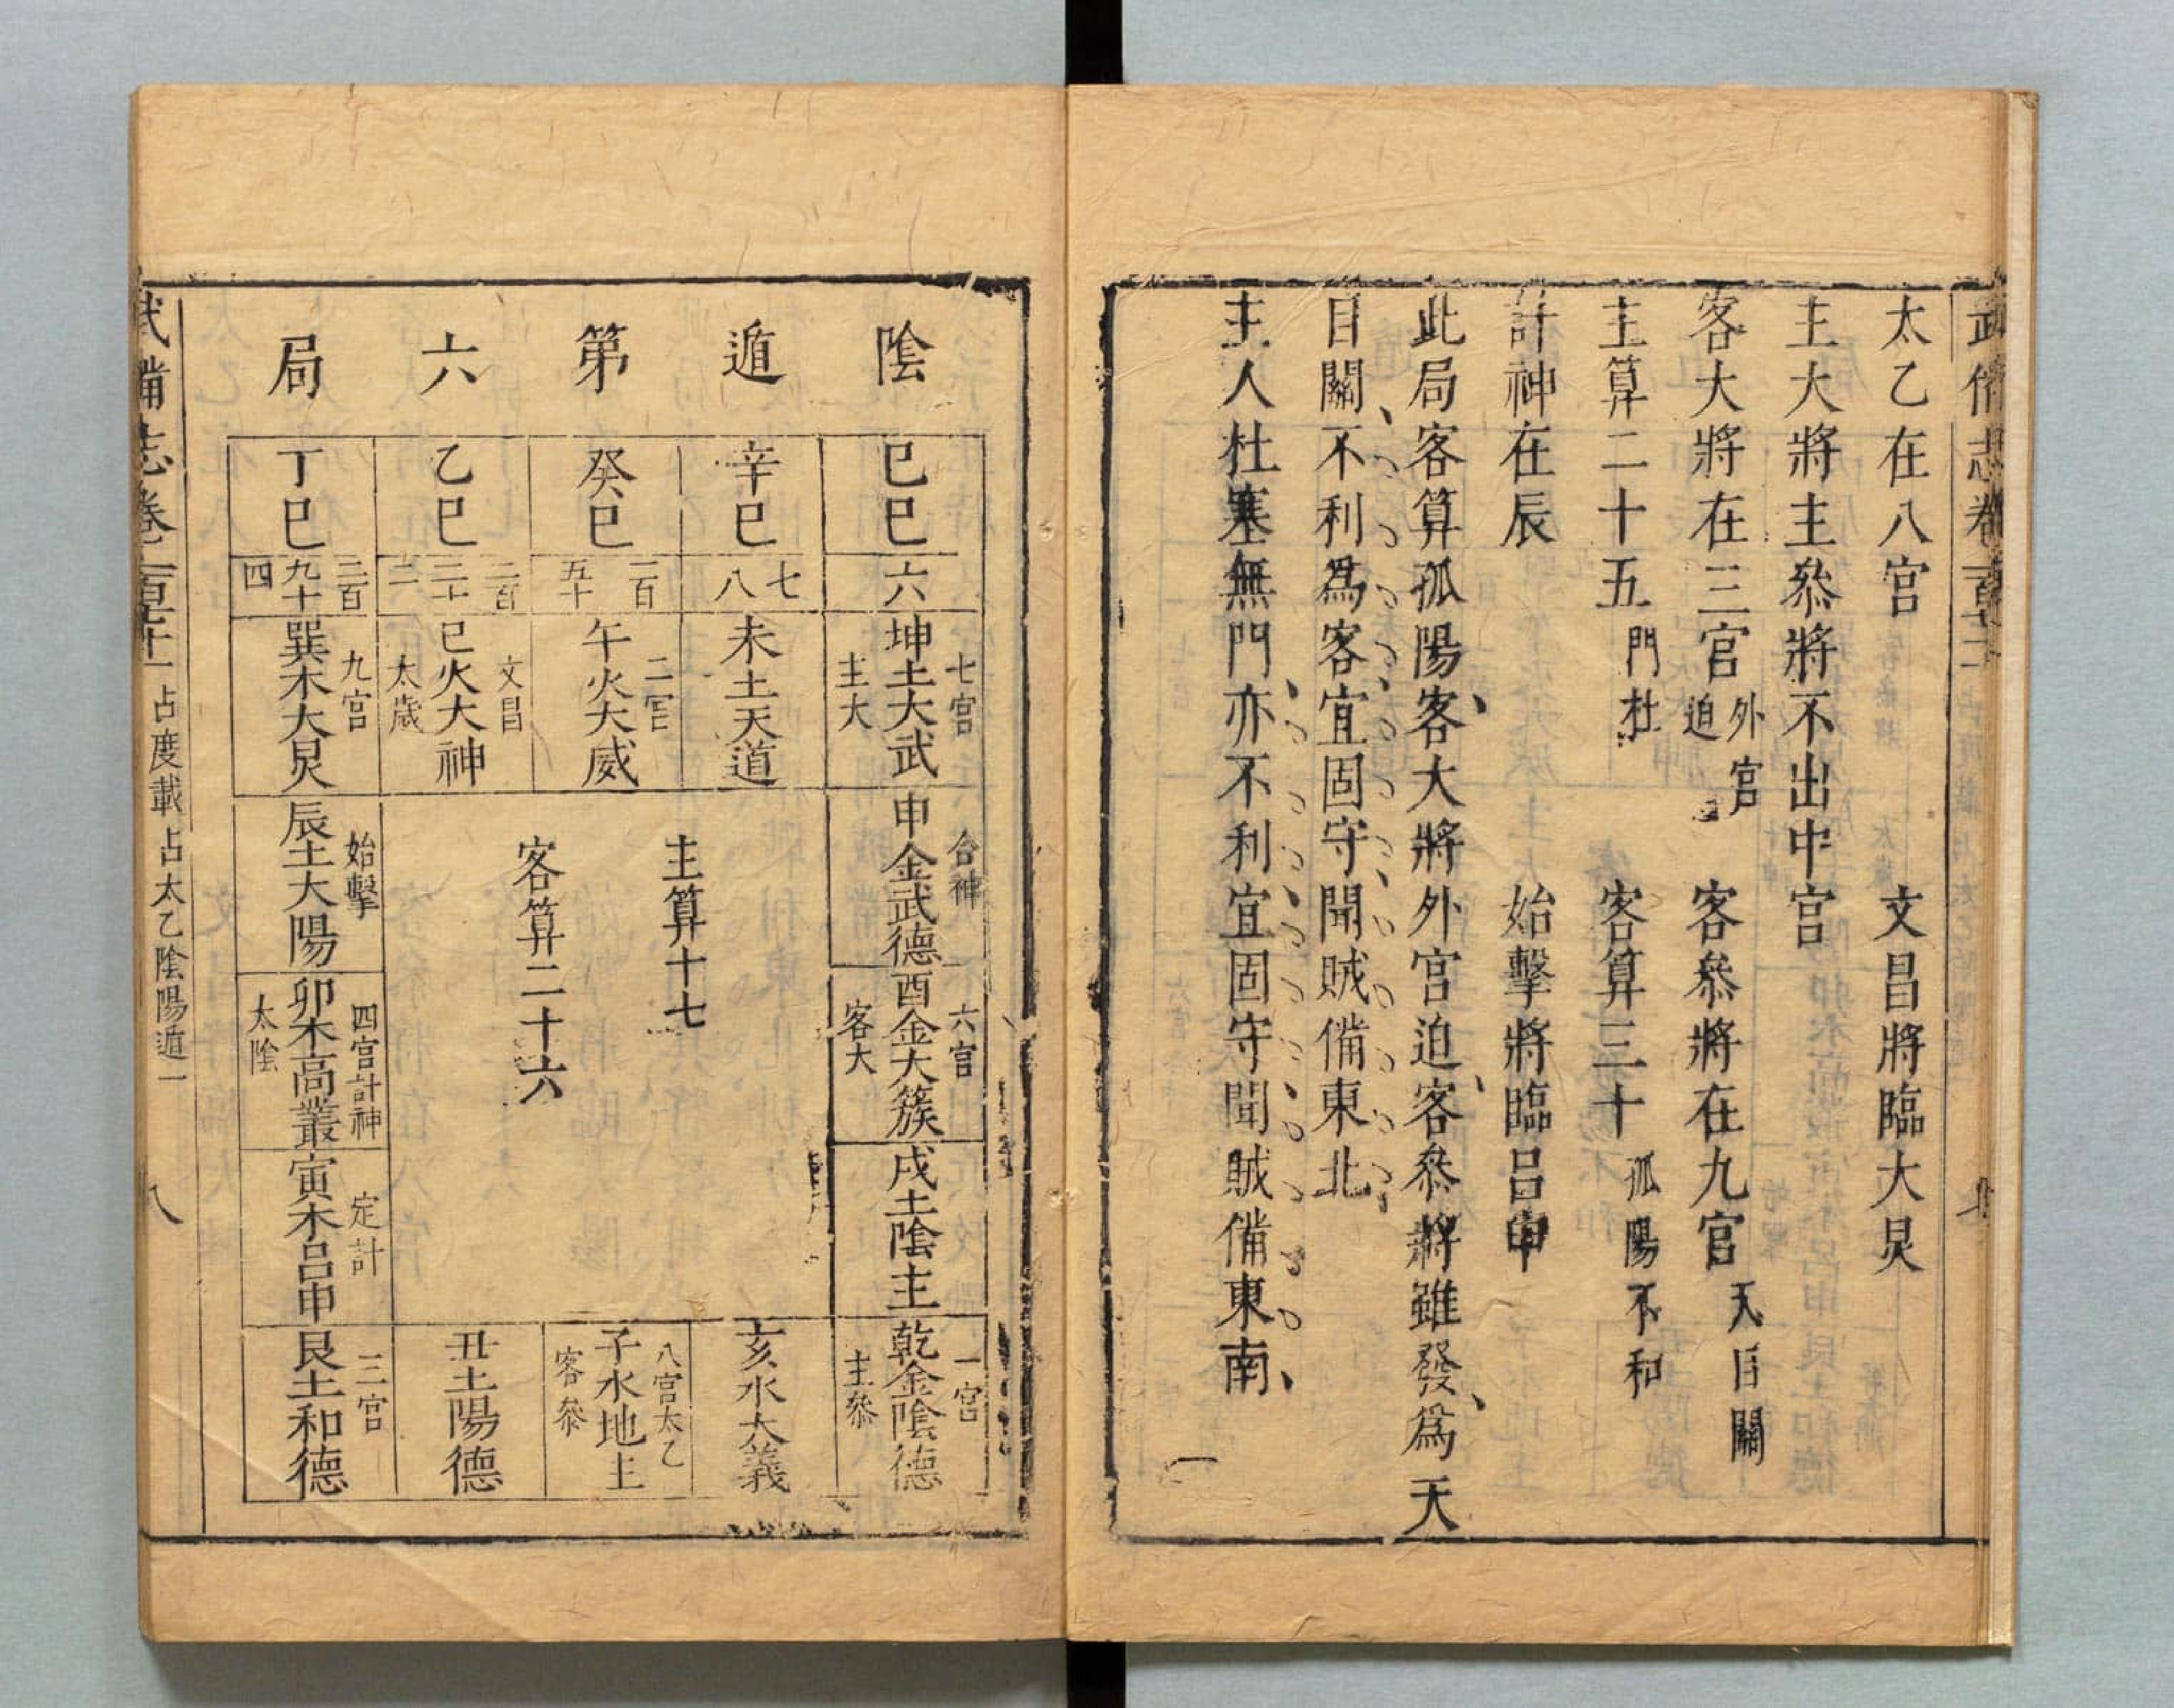 武備志卷
太乙在八宮 文昌將臨大炅
主大將主叅將不出中宮
客大將在三宮 外宮迫 客叅將在九宮 天目關
主算二十五 門杜 客算三十 孤陽不和
計神在辰 始擊將臨呂申
此局客算孤陽客大將外宮迫客叅將雖發為天
目關不利為客宜固守聞賊備東北
主人杜塞無門亦不利宜固守聞賊備東南
陰遁第六局
己巳 六
辛巳 七八
癸巳 一百五十
乙巳 二百二十二
丁巳 二百九十四
七宮 坤土大武 主大
未土天道
二宮 午火大威
文昌 巳火大神 太歲
九宮 巽木大炅
合神 申金武德
六宮 酉金大簇 客大
戌土陰主
主算十七
客算二十六
始擊 辰土大陽
四宮計神 卯木高叢 太陰
定計 寅木呂申
一宮 乾金陰德 主叅
亥水大義
八宮太乙 子水地主 客叅
丑土陽德
三宮 艮土和德
武備志卷 占度載占太乙陰陽遁一 八